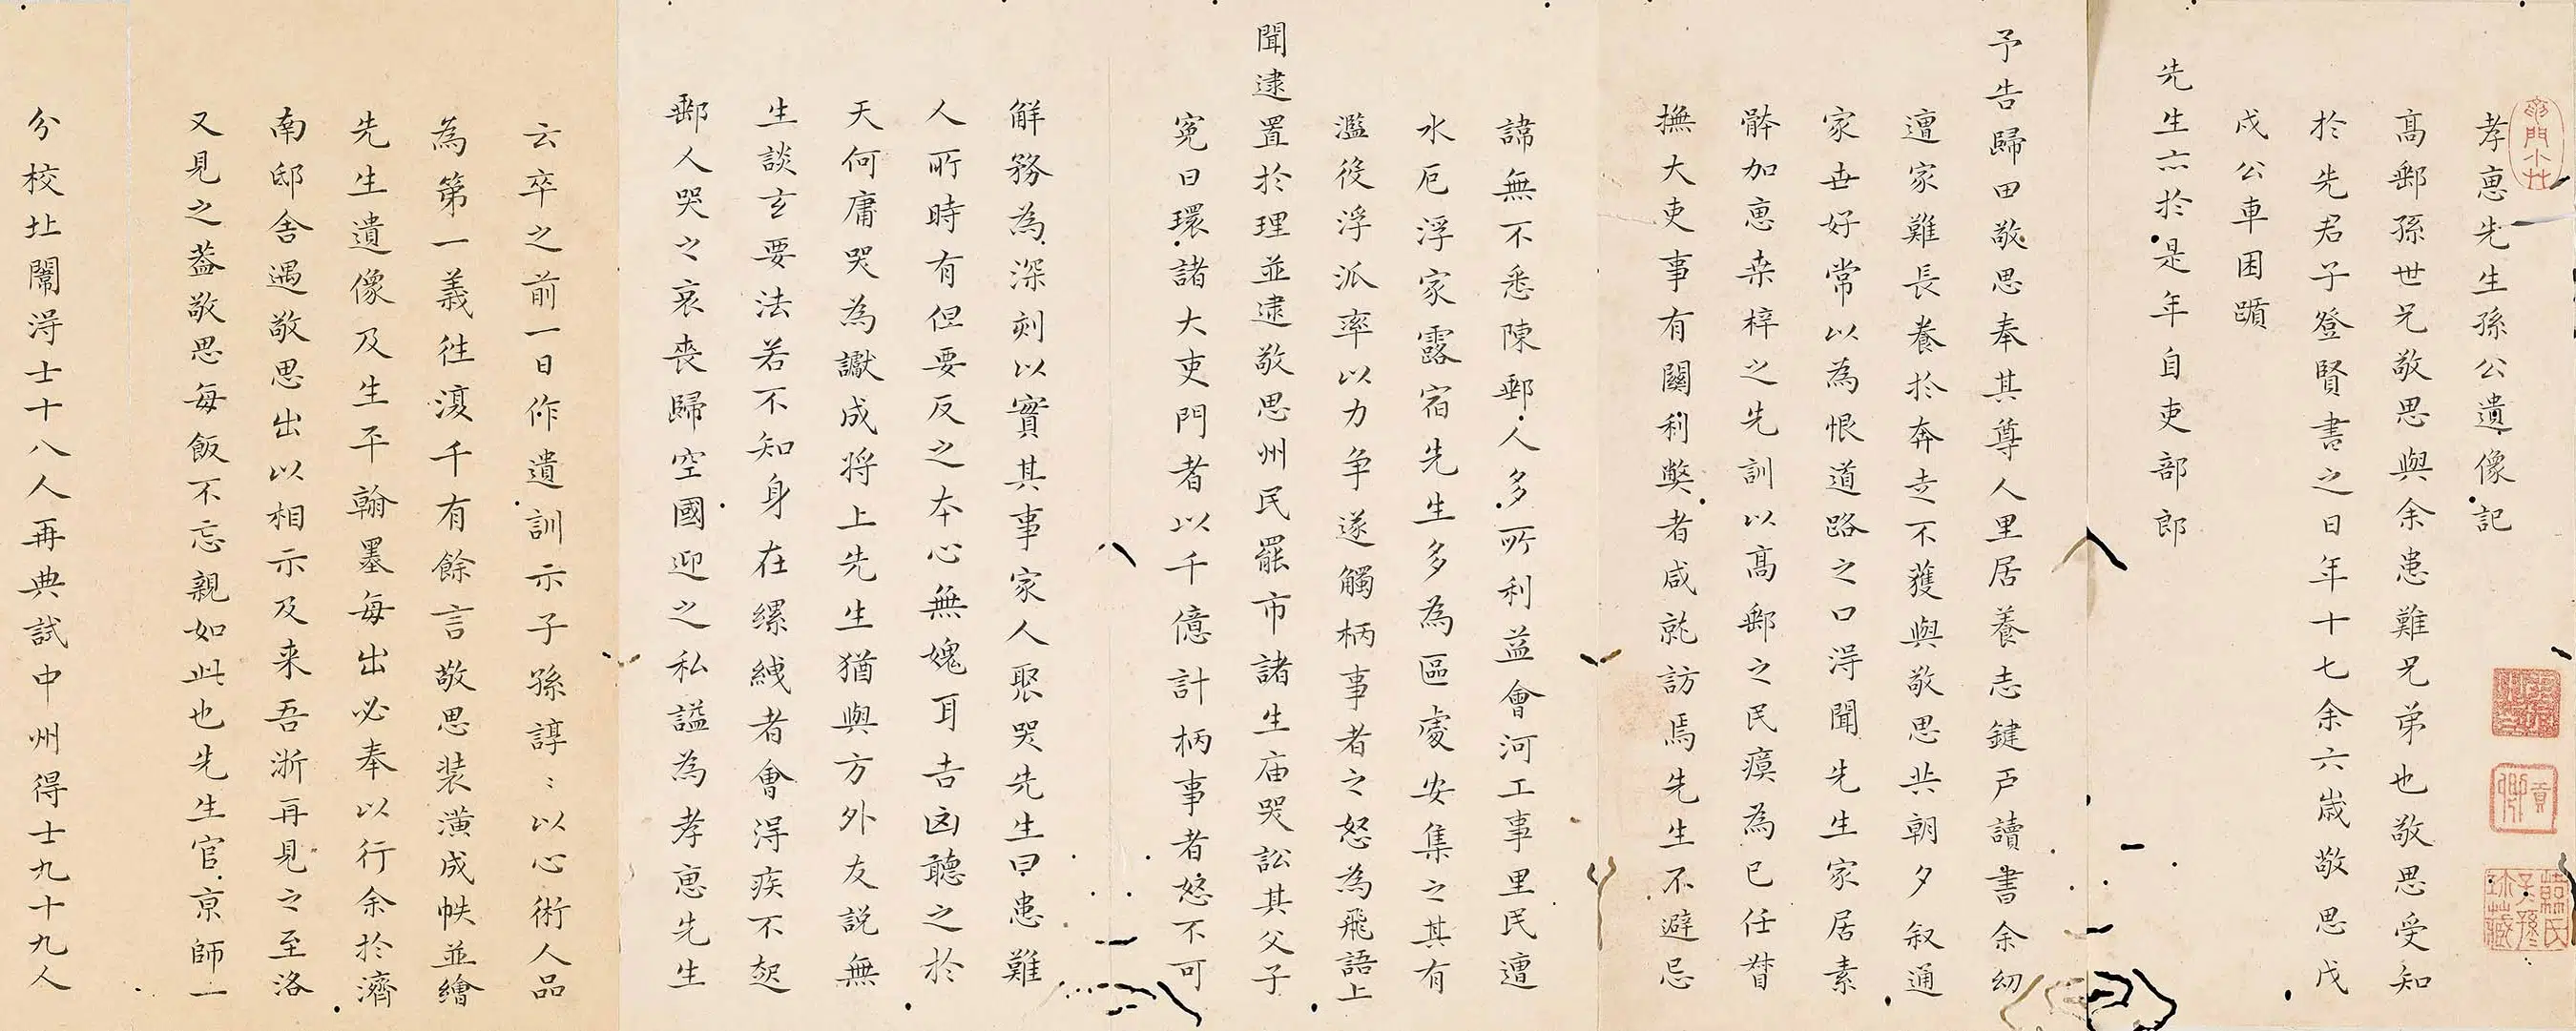 孝惠先生孫公遺像記
高郵孫世兄敬思與余患難兄弟也敬思受知
於先君子登賢書之日年十七余六歲敬思戊
戌公車困躓
先生亦於是年自吏部郎
予告歸田敬思奉其尊人里居養志鍵戶讀書余幼
遭家難長養於奔走不獲與敬思共朝夕叙通
家世好常以為恨道路之口得聞先生家居素
骵加惠桒梓之先訓以高郵之民瘼為已任督
撫大吏事有關利獘者咸就訪焉先生不避忌
諱無不悉陳郵人多所利益會河工事里民遭
水厄浮家露宿先生多為區處安集之其有
濫役浮派率以力争遂觸柄事者之怒為飛語上
聞逮置於理並逮敬思州民罷市諸生庙哭訟其父子
寃日環諸大吏門者以千億計柄事者怒不可
觧務為深刻以實其事家人聚哭先生曰患難
人所時有但要反之本心無媿耳吉凶聽之於
天何庸哭為讞成将上先生猶與方外友説無
生談玄要法若不知身在縲絏者會得疾不起
郵人哭之哀喪歸空國迎之私謚為孝惠先生
云卒之前一日作遺訓示子孫諄〻以心術人品
為第一義徃澓千有餘言敬思装潢成帙並繪
先生遺像及生平翰墨每出必奉以行余於濟
南邸舍遇敬思出以相示及来吾浙再見之至洛
又見之葢敬思每飯不忘親如此也先生官京師一
分校北闈得士十八人再典試中州得士九十九人
貢
卿
韓氏
子孫
珎藏